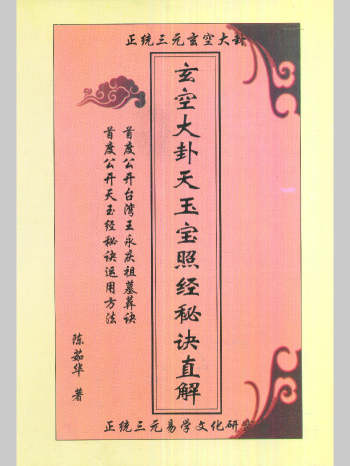 正统三元玄空大卦
玄空大卦天玉宝照经秘诀直解
首度公开台湾王永庆祖墓葬诀
首度公开天玉经秘诀运用方法
陈茹华 著
正统三元易学文化研